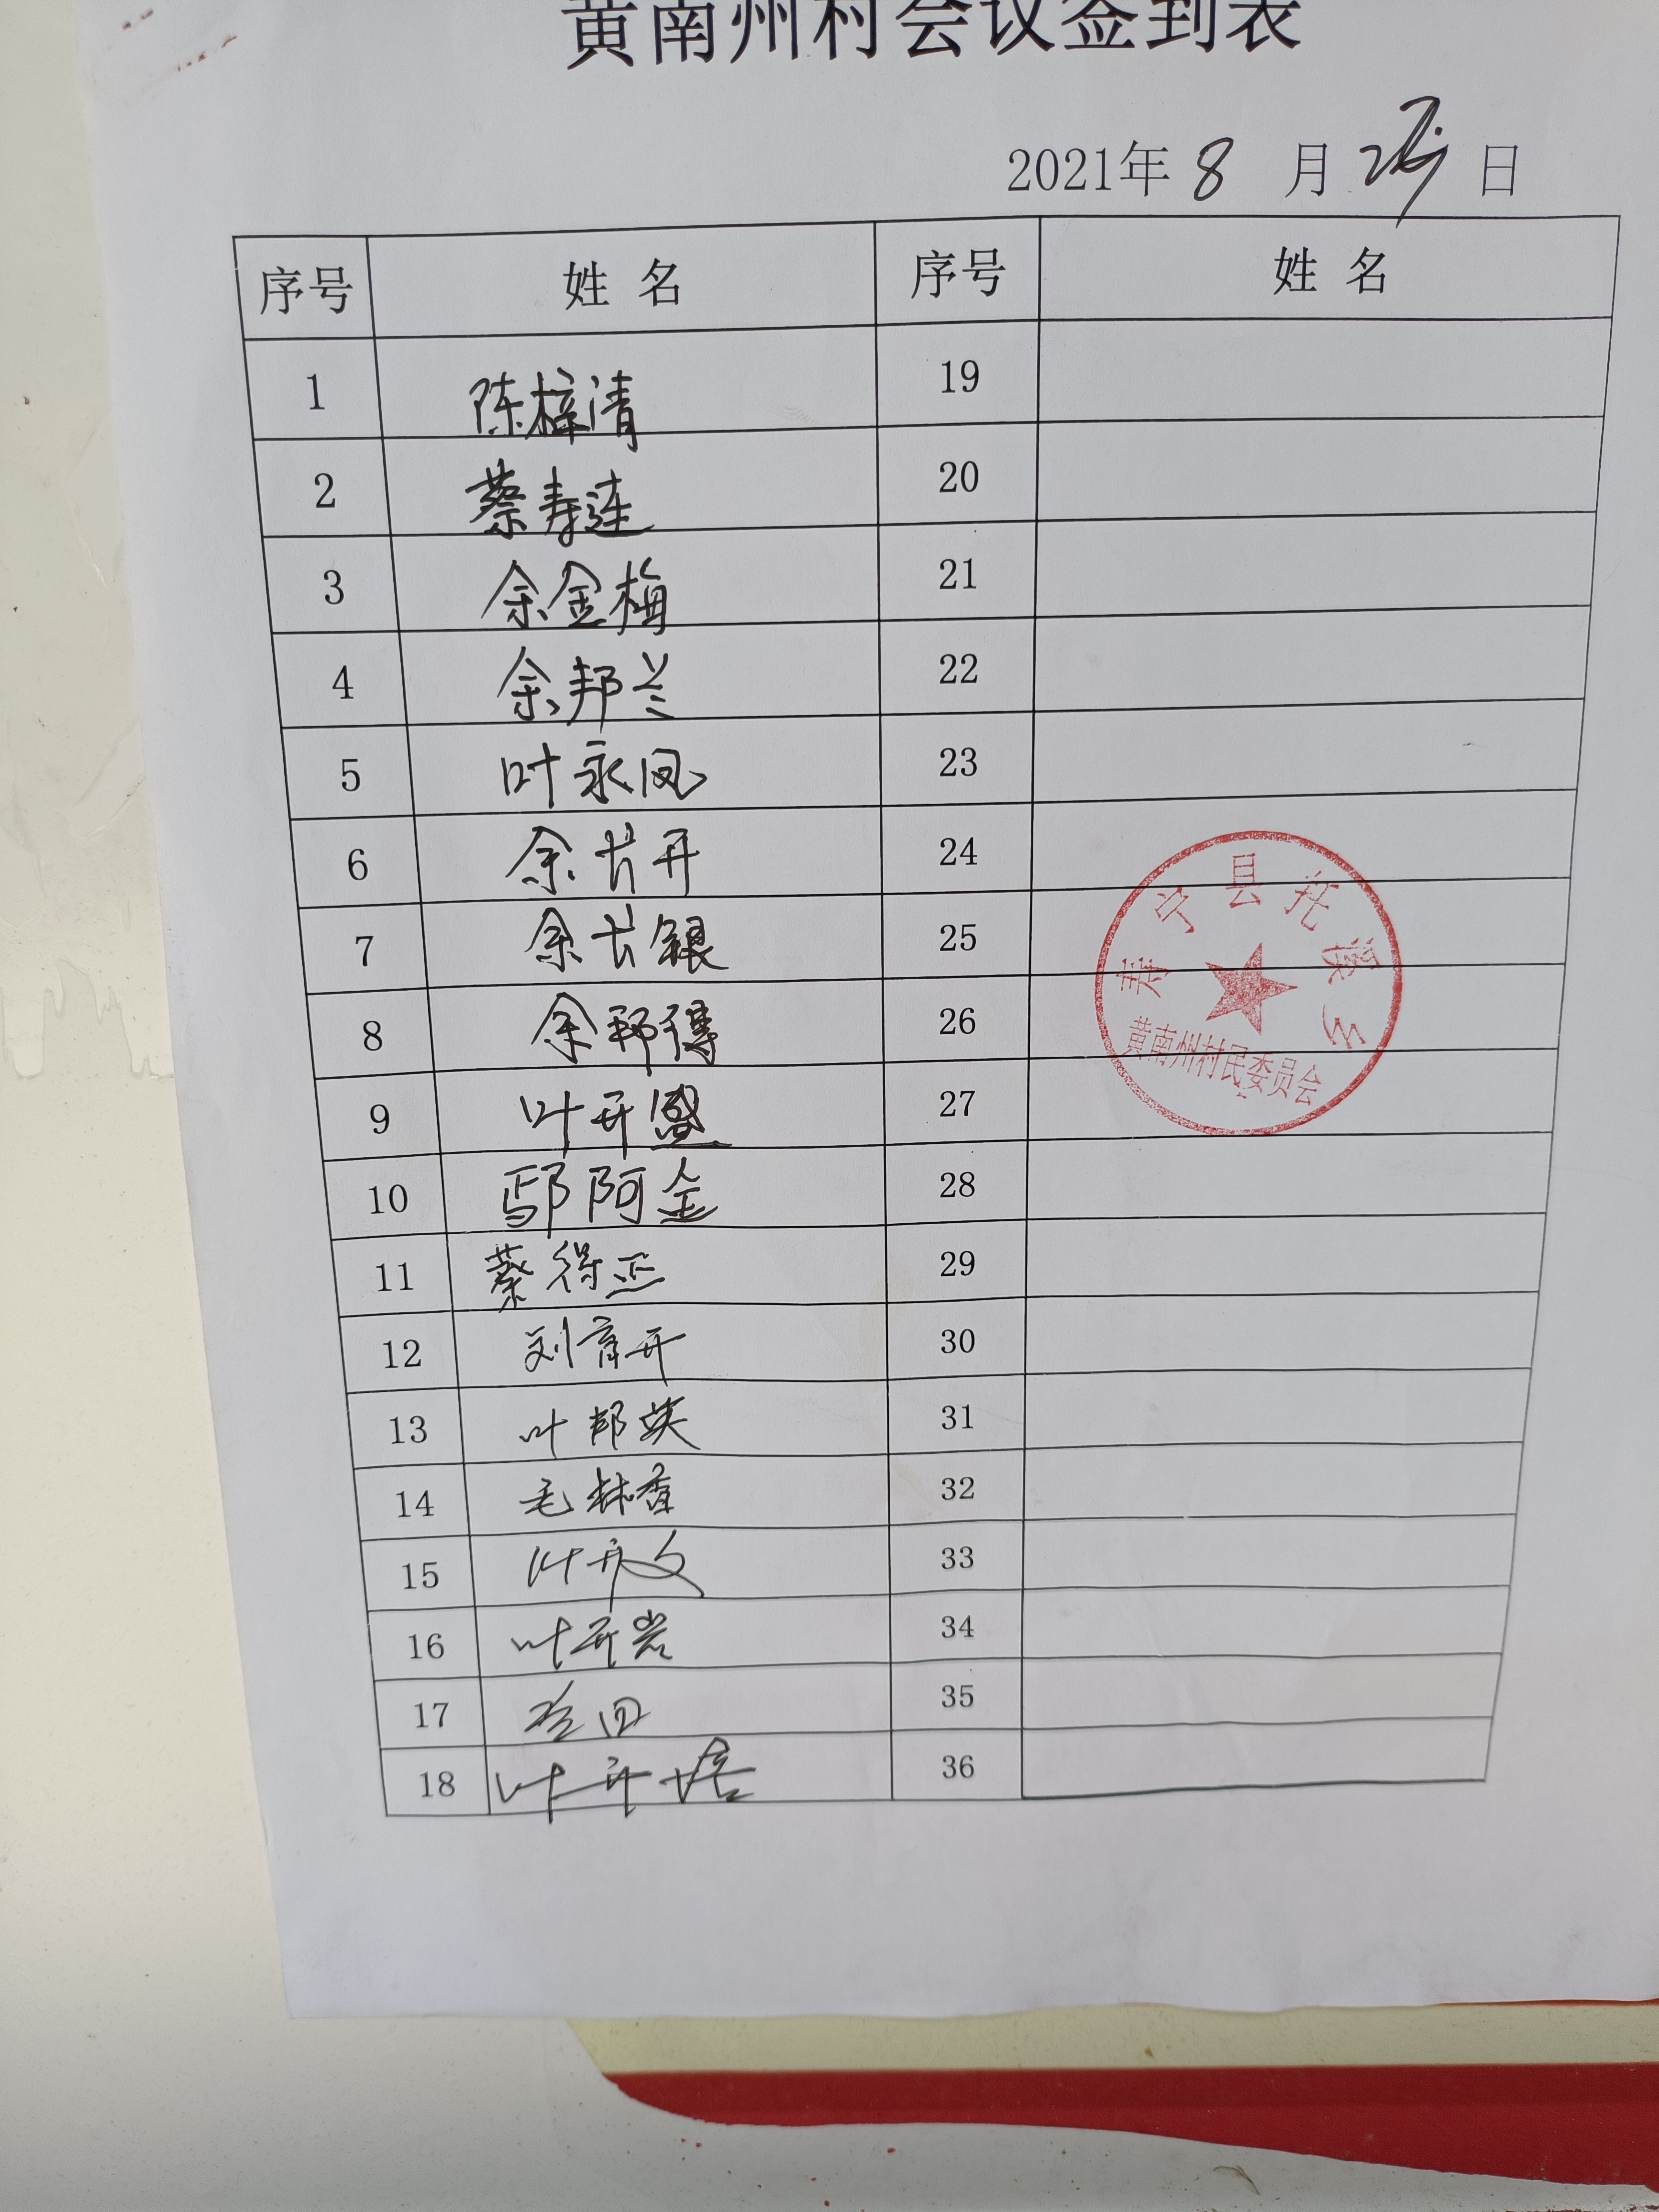 黄南州村会议签到表
2021年 8 月 日
序号 姓 名 序号 姓 名
1 陈梓清 19
2 蔡寿莲 20
3 余金梅 21
4 余邦兰 22
5 叶永凤 23
6 余长开 24
7 余长银 25
8 余邦得 26
9 叶开盛 27
10 鄢阿金 28
11 蔡得正 29
12 刘育开 30
13 叶邦英 31
14 毛林香 32
15 叶开文 33
16 叶开岩 34
17 35
18 叶开 36
寿宁县托溪乡
黄南州村民委员会